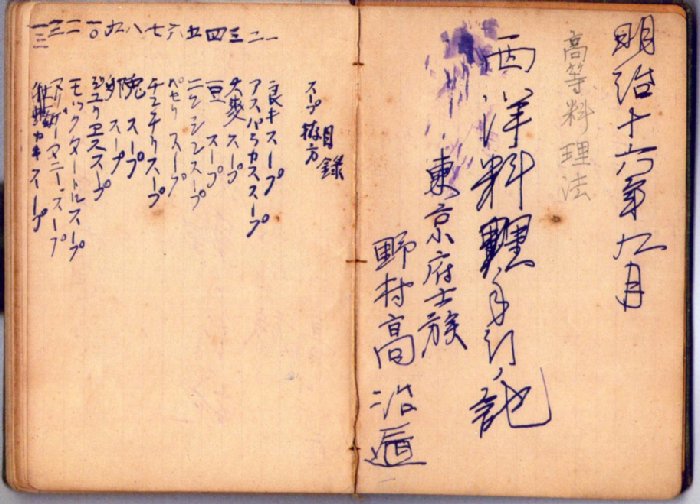 明治十六年九月
高等料理法
西洋料理手引ノ記
東京府士族
野村高治
目録
スープ拵方
一 良キスープ
二 アスパラカススープ
三 大麦スープ
四 豆スープ
五 ニンジンスープ
六 ペセリスープ
七 チエンチリスープ
八 スープ
九 スープ
一〇 スープ
一一 モックタートルスープ
一二 スープ
一三 カキスープ